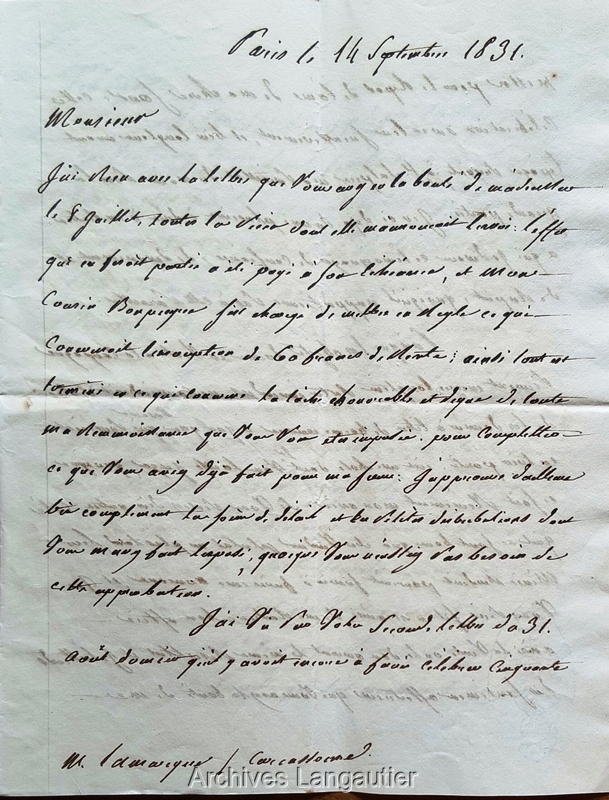 Paris le 14 Septembre 1831.
Monsieur
J'ai reçu avec la lettre que vous avez eu la bonté de m'adresser
le 8 Juillet, toutes les pièces dont elle m'annonçait l'envoi. l'effet
qui en faisoit partie a été payé à son échéance, et mon
Cousin fut chargé de mettre en Règle ce qui
Concernoit l'inscription de 60 francs de Rente; ainsi tout est
terminé en ce qui concerne la tâche honorable et digne de toute
ma Reconnoissance que vous vous etes imposée, pour Completter
ce que vous avez déjà fait pour ma Japrouve d'ailleurs
bien complettement les soins de détail et les Petites distributions dont
Vous m'avez fait l'exposé, quoique Vous n'ayez Pas besoin de
cette approbation.
J'ai Vu Par Votre Seconde lettre du 31.
août dernier qu'il y avoit encore à faire célébrer cinquante
M. Lamarque / Carcassonne.
Archives Langautier